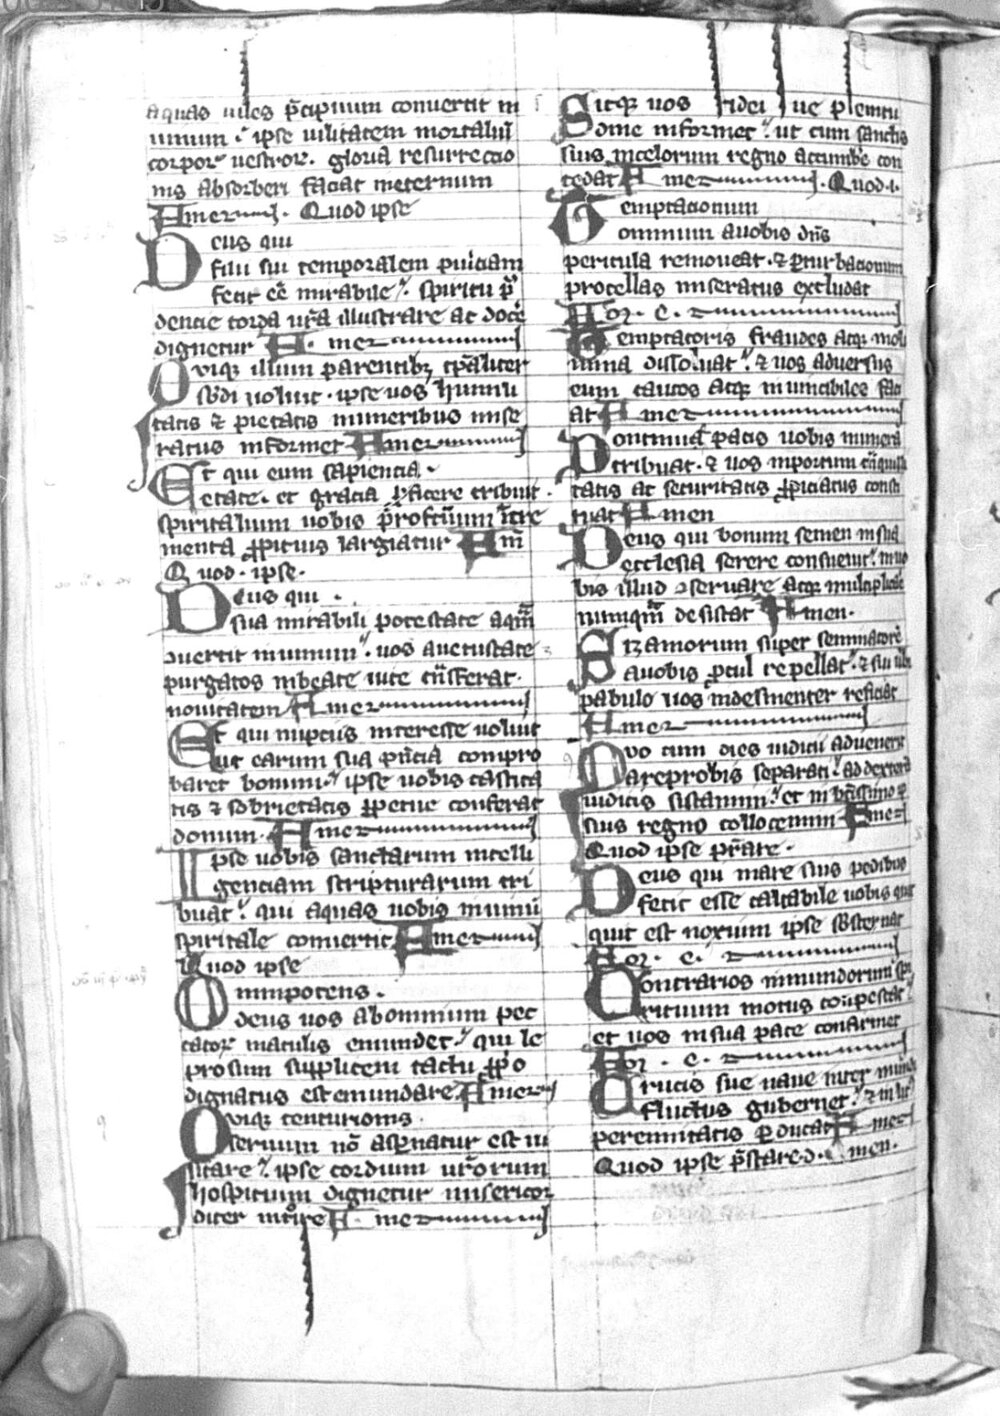 aquas uiles p̄cipuum conuertit in
uinum ipse uilitatem mortaliū
corpoꝝ uestroꝝ. gloria resurrectio
nis absorberi faciat ineternum
Amen. Quod ipse
Deus qui
filii sui temporalem pueritiam
fecit eē mirabilē spiritu pͥ
dencie corda ur̄a illustrare ac docē
dignetur Amen
Quiqꝫ illum parentibꝫ tp̄aliter
s̄bdi uoluit. ipse uos humili
tatis ⁊ pietatis muneribus mise
ratus informet Amen
Et qui eum sapiencia.
etate. et gracia ꝓficere tribuit.
spiritalium uobis profectuum īcre
menta ꝓpitius largiatur Am̄
Quod. ipse.
Deus qui.
sua mirabili potestate aquā
ꝯuertit in uinum. uos auetustate
purgatos inbeate uite trāsferat.
nouitatem Amen
Et qui nuptiis interesse uoluit
ut earum sua pn̄cia compro
baret bonum. ipse uobis castita
tis ⁊ sobrietatis ꝑpetue conferat
donum. Amen
Ipse uobis sanctarum intelli
genciam scripturarum tri
buat. qui aquas uobis in uinū
spiritale conuertit Amen
Quod ipse
Omnipotens.
deus uos abomnium pec
catoꝝ maculis emundet. qui le
prosum supplicem tactu ꝓp̄o
dignatus est emundare Amen
Quiqꝫ centurionis.
seruum nō aspnatur est ui
sitare. ipse cordium ur̄orum
hospitium dignetur misericor
diter intrare Amen
Sicqꝫ uos fidei sue plenitu
dome informet. ut cum sanctis
suis incelorum regno acumbē con
cedat Amen. Quod.i.
Temptacionum
omnium auobis dn̄s
pericula remoueat. ⁊ ꝑturbacionum
procellas miseratus excludat
Hor. e.
Temptatoris fraudes atqꝫ moli
mina dissoluat. ⁊ uos aduersus
eum cautos atqꝫ inuincibiles faci
at Amen
Continuā pacis uobis munera
tribuat. ⁊ uos inportum trāquilli
tatis ac securitatis ꝓpiciatus consti
tuat Amen
Deus qui bonum semen insua
ecclesia serere consueuit. inuo
bis illud ꝯseruare atqꝫ multiplicare
numqm̄ desistat Amen.
Zizaniorum super seminatorē
auobis ꝓcul repellat. ⁊ sui ūbi
pabulo uos indesinenter reficiat
Amen
Quo cum dies iudicii aduenerit
areprobis separati. ad dexterā
iudicis sistamini. et in btīssimo
suis regno collocemini Amen
Quod ipse pr̄stare.
Deus qui mare suis pedibus
fecit esse calcabile uobis quic
quit est noxium ipse s̄bsternat
Hor. e.
Contrarios inmundorum spi
rituum motus compescat
et uos insua pace confirmet
Hor. e.
Crucis sue naue inter mundi
fluctus gubernet. ⁊ in lit
perennitatis ꝑducat Amen
Quod ipse p̄stare.d. Amen.